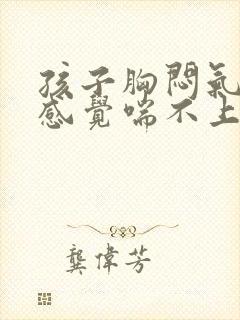 孩子胸悶氣
感覺喘不上
龔偉芳